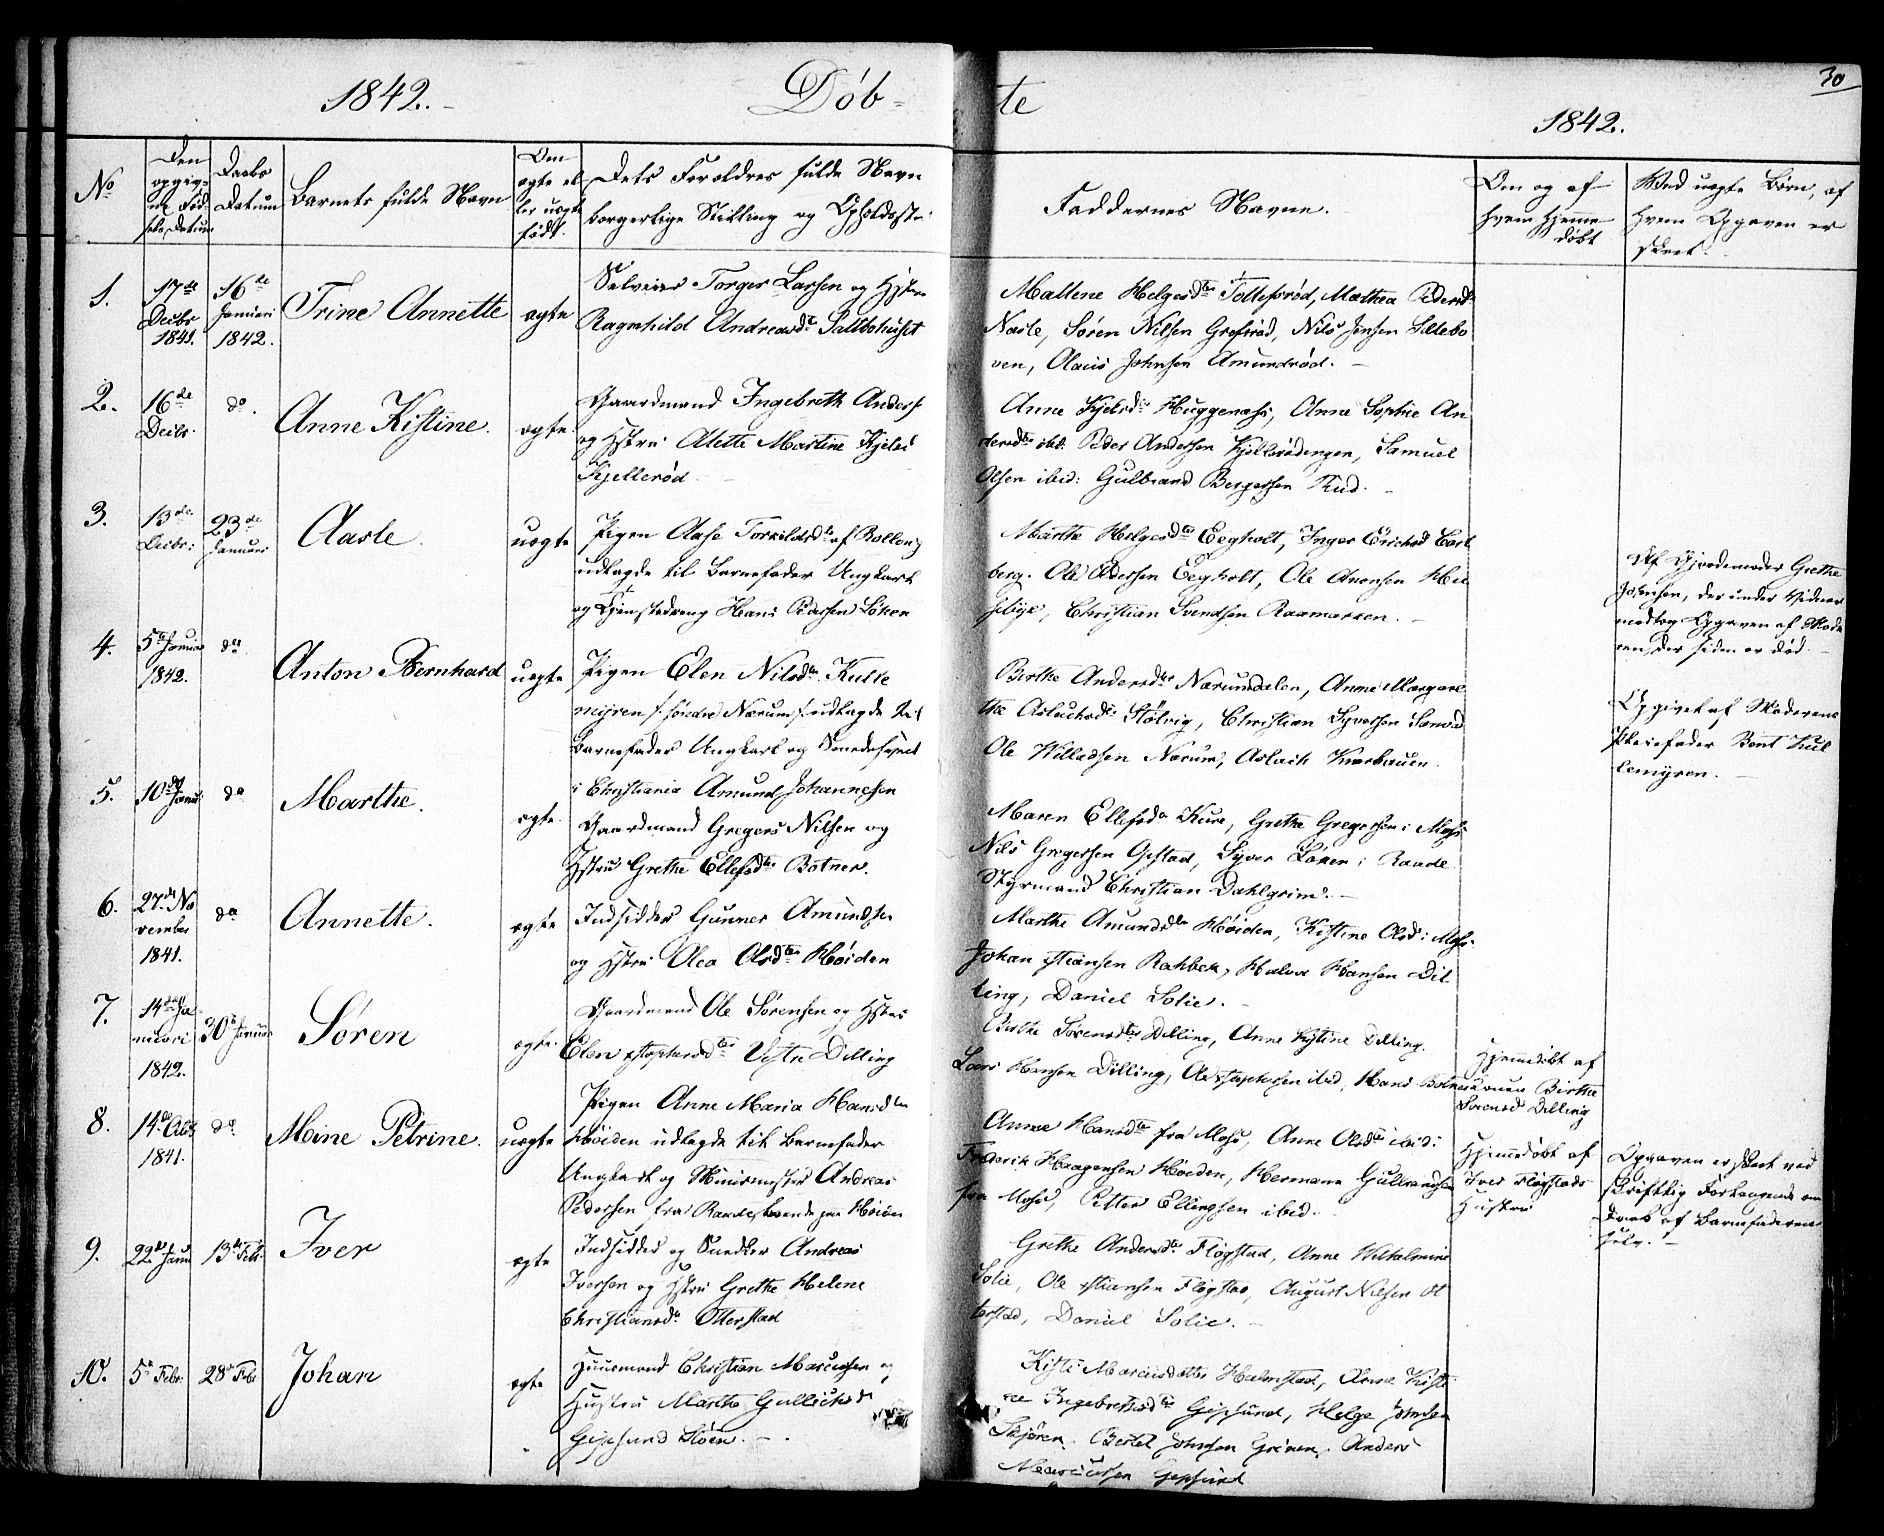 1842. Döb-
te
30
1842.
No
Den opgiv- ne Fød- sels Datum
Daabs Datum
Barnets fulde Navn
Om ægte el ler uægte født.
Dets Foreldres fulde Navn
borgerlige Stilling og Opholdsste
Faddernes Navne.
Om og af hvem Hjemme døbt
Ved uægte Børn, af
hvem Opgaven er
skeet.
1. 17de Decbr 1841. 16de Januari 1842. Trine Annette ægte
Torger Larsen og Hstru
Ragnhild Andreasd Saltbohuset
Mallene Helgesdtr Tollefsrød, Mathea Pedersd
Narle, Søren Nilsen Grefsrød, Nils Jensen Sillebo
ven, Olaus Johnsen Amundrød.
2. 16de Decbr. do. Anne Kistine. ægte
Gaardmand Ingebreth Anders
og Hstru Alette Martine Kjels
Kjellerød
Anne Huggenæs, Anne Sophie An
dersdtr ibid: Peder Andersen Kjellerødengen, Samuel
Olsen ibid: Gulbrand Bergersen Rud.
3. 13de Decbr: 23de Januari Aasle uægte
Pigen Aase Torkildsdtr af
udlagde til Barnefader Ungkarl
og Tjenstedreng Hans Pedersen Løken
Marthe Helgesdtr Eegholt, Inger
berg. Ole Pedersen Eegholt, Ole Aronsen Hu
Christian Svendsen Raamarken.
Af Gjordemoder Grethe
Johnsen, der under Vidner
modtog Opgaven af Mode
ren, der siden er død.
4. 5te Januar 1842. do Anton Bernhard uægte
Pigen Elen Nilsdtr Kulle
myren /: søndre Nærum :/ udlagde til
Barnefader Ungkarl og Smedesvend
i Christiania Amund Johannesen
Birthe Andersdtr Nærumdalen, Anne Margare
the Aslachsdtr Støtvig, Christian Syversen
Ole Willadsen Nærum, Aslach
Opgivet af Moderens
Pleiefader Bent Kul
lemyren.
5. 10de Janu do Marthe. ægte.
Gaardmand Gregers Nilsen og
Hstru Grethe Ellefsdtr Botner.
Maren Ellefsdtr Kure, Grethe Gregersen i Moss
Nils Gregersen Ørstad, Syver Løken i Raade
Styrmand Christian Dahlgrim.
6. 27de No vember 1841. do Annette. ægte
Indsidder Gunner Amundsen
og Hstru Olea Olsdtr Høiden
Marthe Amundsdtr Høiden, Kistine Olsd i Moss.
Johan Xstiansen Rahbek, Halvor Hansen Dil
ling, Daniel Solie.
7. 14de Ja nuari 1842. 30te Januar Søren ægte.
Gaardmand Ole Sørensen og Hstru
Elen Xstophersdtr Vestre Dilling
Birthe Sørensdtr Dilling, Anne Kistine Dilling.
Lars Hansen Dilling, Ole Xstophersen ibid, Hans
Hjemmedøbt af
Birthe
Sørensd Dilling
8. 14de Octb 1841. do Moine Petrine. uægte
Pigen Anne Maria Hansdtr
Høiden udlagde til Barnefader
Ungkarl og Andreas
Pedersen fra Raade, boende paa Høiden
Anne Hansdtr fra Moss, Anne Olsdtr ibid:
Frederik Haagensen Høiden, Hermann Gulbrandsen
fra Moss, Petter Ellingsen ibid.
Hjemmedøbt af
Iver Fløgstads
Hustru
Opgaven er skeet ved
skriftlig Forlangende om
Daab af Barnefaderen
selv.
9. 22de Janu 13de Febr Iver ægte
Indsidder og Snedker Andreas
Iversen og Hstru Grethe Helene
Christiansdr. Otterstad
Grethe Andersdtr Fløgstad, Anne Wilhelmine
Solie, Ole Xstiansen Fløgstad, August Nilsen Ot
terstad, Daniel Solie.
10. 5te Febr. 28de Febr Johan ægte
Huusmand Christian Marcussen og
Hustru Marthe Gullichsd
Gipsund Støen.
Kisti Marcusdatter Halmstad, Anne Kisti
ne Ingebrethsdtr Gipsund, Helge Johnsen
Skjøren. Bertel Johnsen Grønen. Anders
Marcussen Gipsund